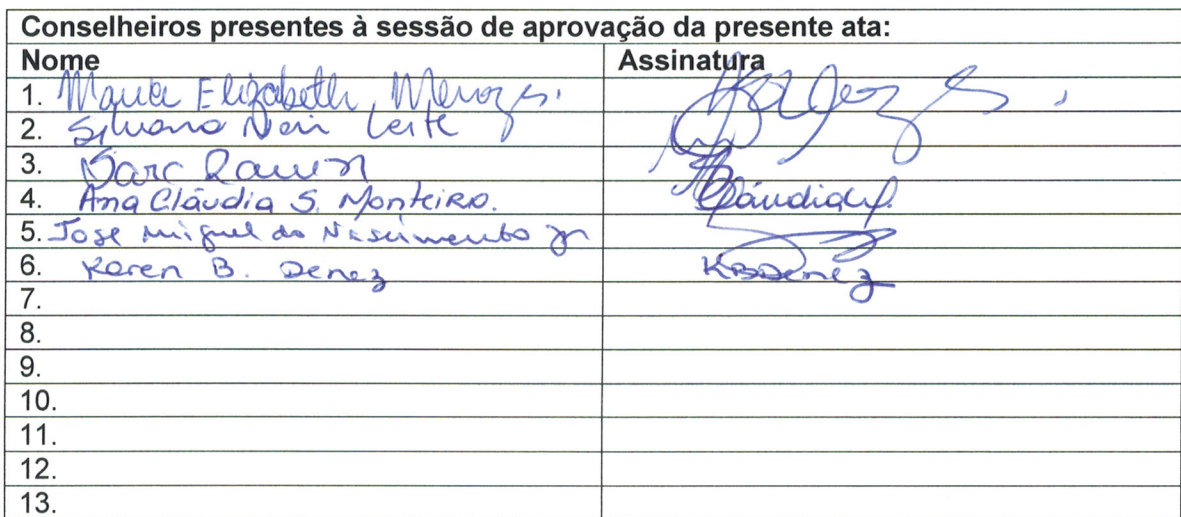 Conselheiros presentes à sessão de aprovação da presente ata:
Nome Assinatura
1. Elizabeth
2. Silvana Nair Leite
3.
4. Ana Cláudia S. Monteiro. Cláudia
5. Jose Miguel do Nascimento Jr
6. Karen B. Denez KBDenez
7.
8.
9.
10.
11.
12.
13.